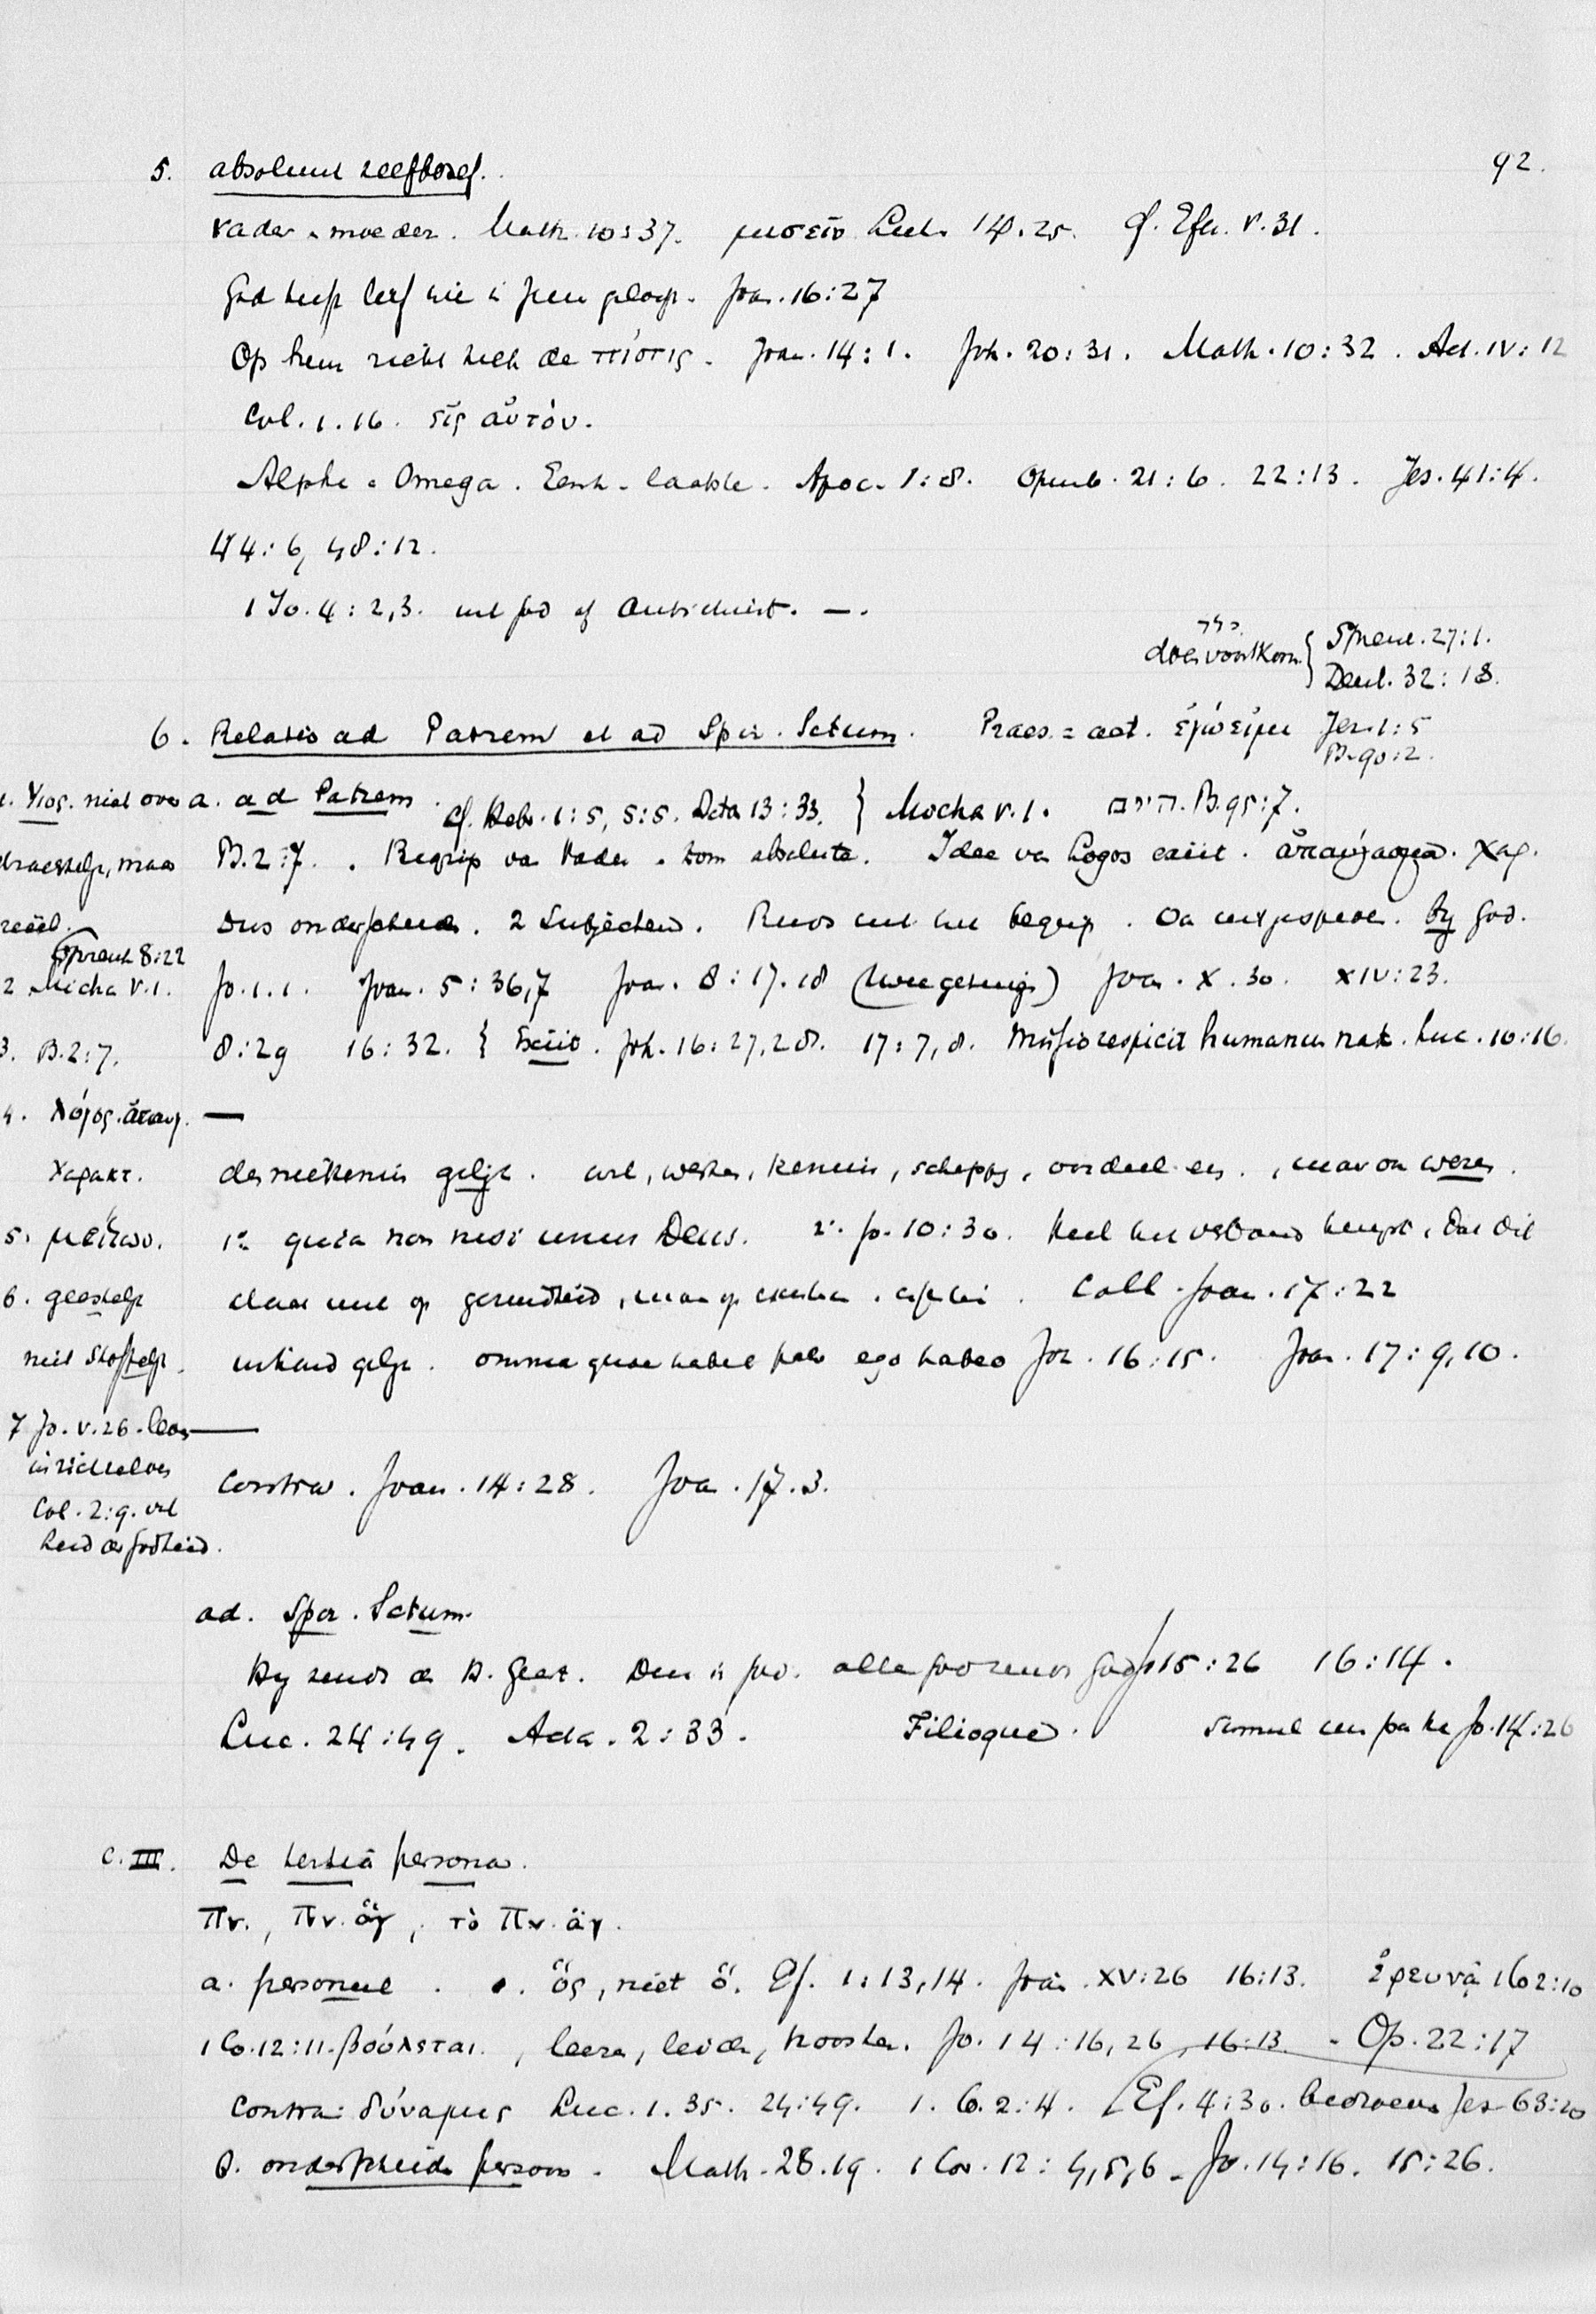 92.
5. absoluut liefhebb.
Vader & moeder. Math. 10:37. μισεῖν Luk. 14.25. cf. Efez. V.31.
God heeft lief wie in Jezus geloof. Joan. 16:27
Op hem richt zich de πίστις. Joan. 14:1. Joh. 20:31. Math. 10:32. Act. IV:12
Col. 1.16. εἰς αὐτόν.
Alpha & Omega. Eerste laatste. Apoc. 1:8. Openb. 21:6. 22:13. Jes. 41:4.
44:6, 48:12.
1 Jo. 4:2,3. uit God of Antichrist. —.
doen voortkom. { Spreuk. 27:1.
Deut. 32:18.
6. Relatio ad Patrem et ad Spir. Sctum. Praes. = aet. ἐγώ εἰμι Jer. 1:5
Ps. 90:2.
a. ad Patrem. cf. Hebr. 1:5, 5:5. Acta 13:33. } Micha V.1. Ps. 95:7.
Ps. 2:7. Begrip van Vader & Zoon absoluta. Idee van Logos exiit. ἀπαύγασμα. χαρ.
Dus onderscheiden. 2 Subjecten. by God.
Jo. 1.1. Joan. 5:36,7 Joan. 8:17.18 (twee getuig.) Joan. X.30. XIV:23.
8:29 16:32. { Exiit. Joh. 16:27,28. 17:7,8. Missio respicit humanam nat. Luc. 10:16.
—
desniettemin gelijk. wil, werken, kennis, schepping, oordeel en., maar ook wezen.
1º quia non nisi unus Deus. 2º. Jo. 10:30. Heel het verband dat dit
Coll. Joan. 17:22
gelijk. omnia quae habet pater ego habeo Joh. 16:15. Joan. 17:9,10.
—
Contra. Joan. 14:28. Joa. 17.3.
1. Υἱός. niet over
drachtelijk, maar
reëel.
Spreuk 8:22
2 Micha V.1.
3. Ps. 2:7.
4. Λόγος. ἀπαυγ.
Χαρακτ.
5. μείζων.
6. geestelijk
niet stoffelijk.
7 Jo. V.26. leven
in zichzelven
Col. 2:9. vol
heid der godheid.
ad. Spir. Sctum.
Hy zendt de H. Geest. Deze is God. alleen God zendt God Jo 15:26 16:14.
Luc. 24:49. Acta. 2:33. Filioque. Simul cum patre Jo. 14:26
C. III. De tertiâ persona.
Πν., Πν. ἅγ, τὸ Πν. ἅγ.
a. personeel. ὅς, niet ὅ. Ef. 1:13,14. Joan. XV:26 16:13. ἐρευνᾷ 1 Co 2:10
1 Co. 12:11. βούλεται., leeren, leiden, troosten. Jo. 14:16,26, 16:13. Op. 22:17
contra: δύναμις Luc. 1.35. 24:49. 1. Co. 2:4. [Ef. 4:30. bedroeven Jes. 63:10
b. onderscheiden persoon. Math. 28.19. 1 Cor. 12:4,5,6. Jo. 14:16. 15:26.